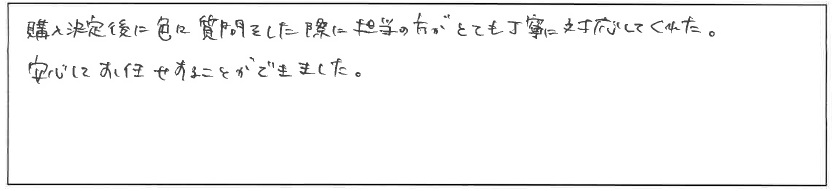 購入決定後に色々質問をした際に担当の方がとても丁寧に対応してくれた。
安心してお任せすることができました。